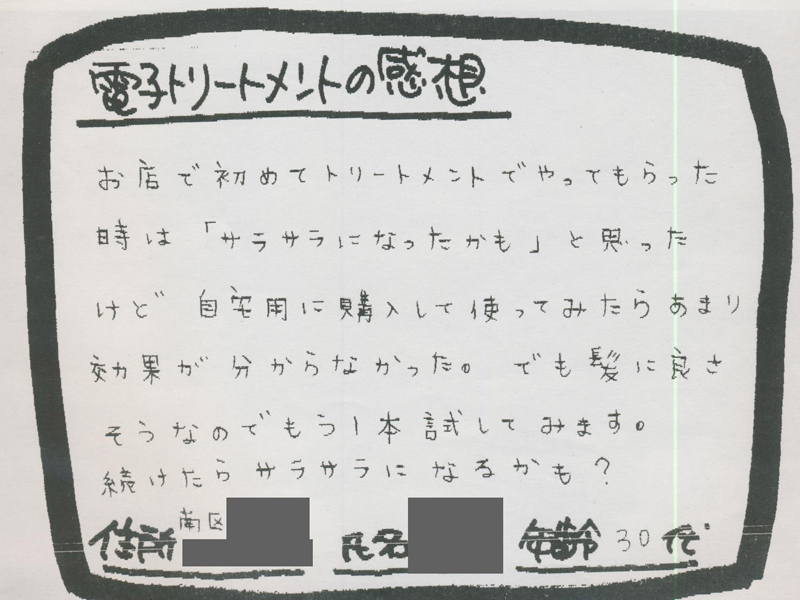 電子トリートメントの感想
お店で初めてトリートメントでやってもらった
時は「サラサラになったかも」と思った
けど 自宅用に購入して使ってみたらあまり
効果が分からなかった。 でも髪に良さ
そうなのでもう1本試してみます。
続けたらサラサラになるかも?
南区
住所 氏名 年齢 30代